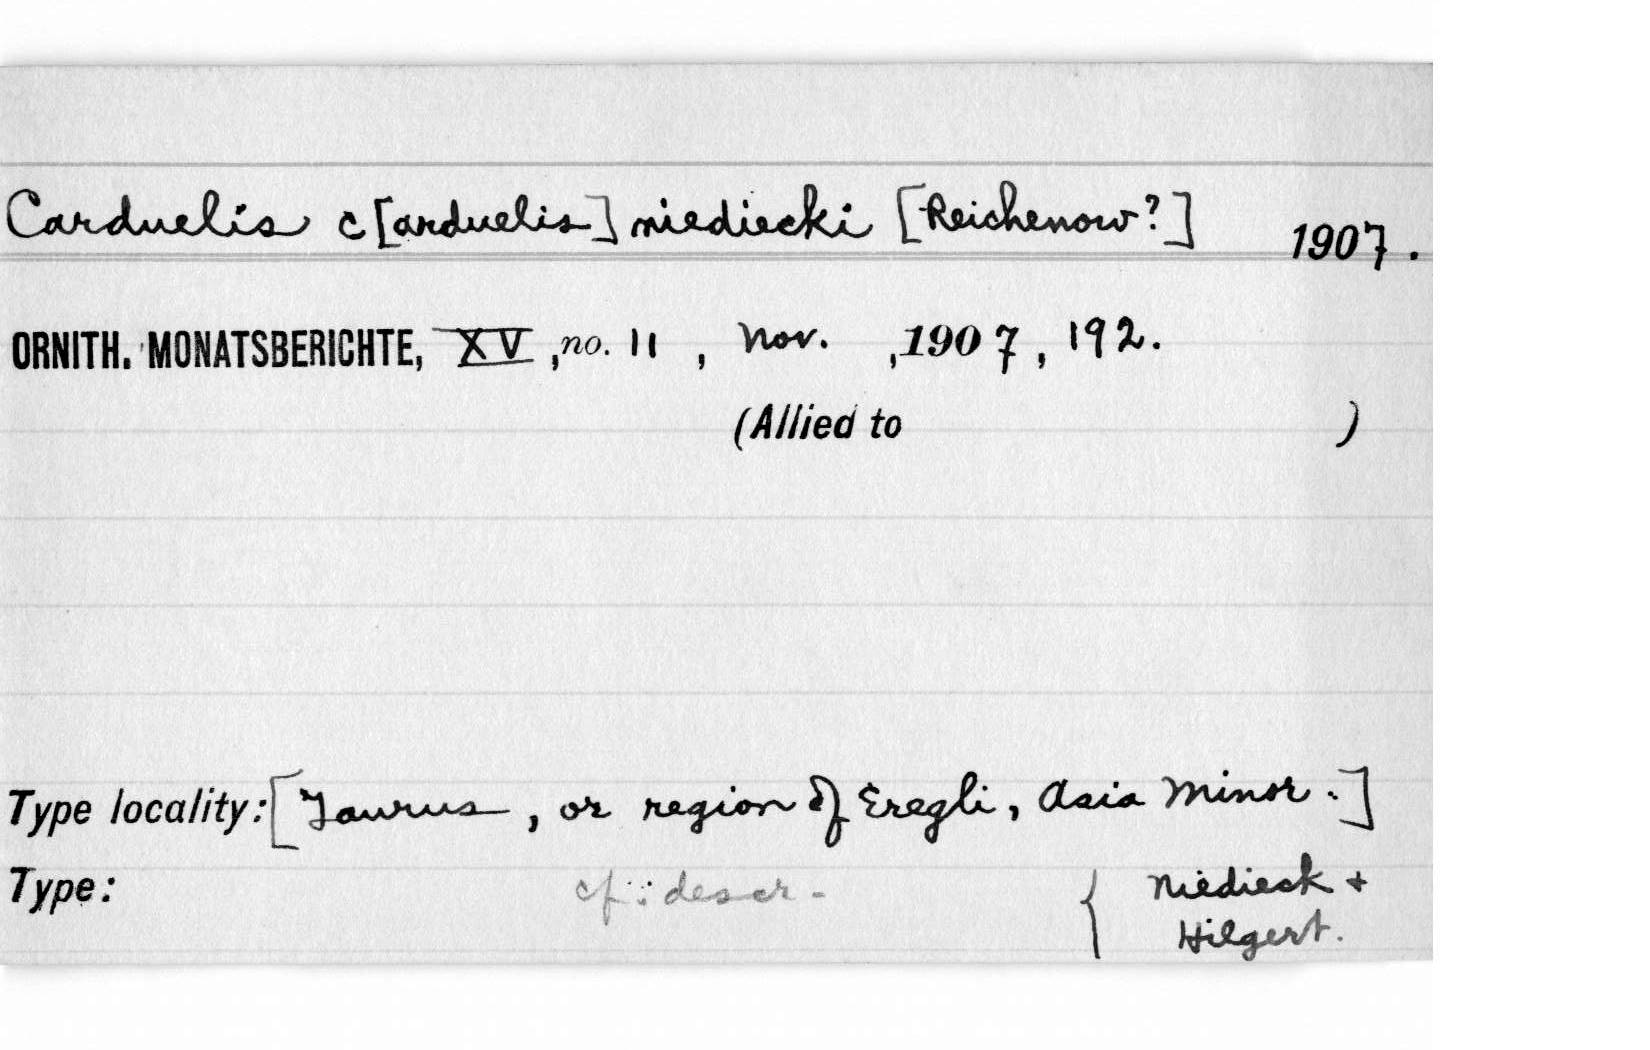 Carduelis c[arduelis] niediecki [Reichenow?] 1907.
ORNITH. MONATSBERICHTE, XV, no. 11, Nov., 1907, 192.
(Allied to )
Type locality: [Taurus, or region of Eregli, Asia Minor.]
Type: cf. descr. { Niedieck +
Hilgert.